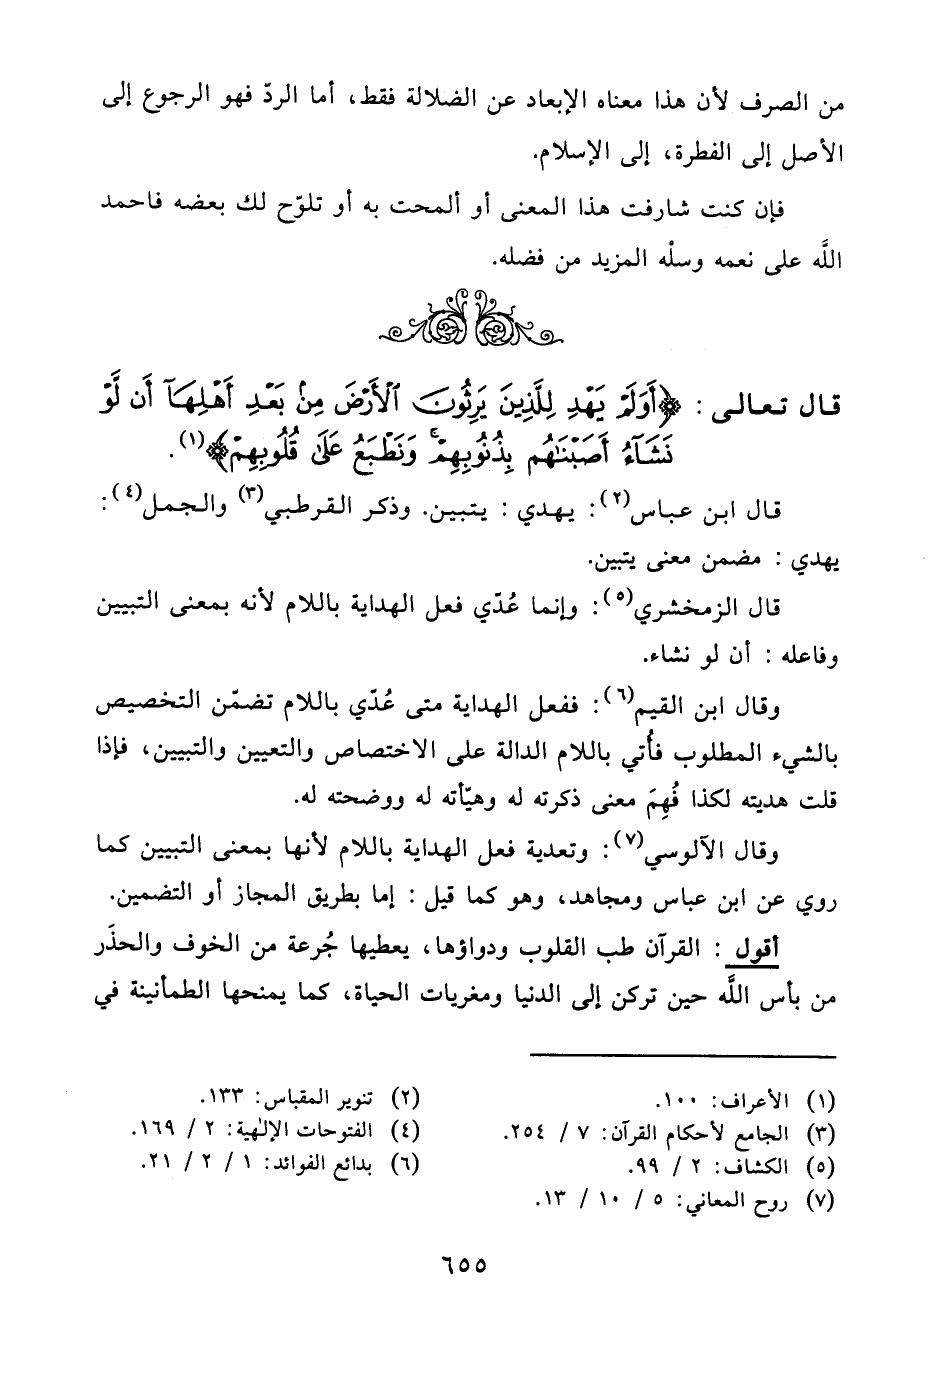 من الصرف لأن هذا معناه الإبعاد عن الضلالة فقط، أما الردّ فهو الرجوع إلى
الأصل إلى الفطرة، إلى الإسلام.
فإن كنت شارفت هذا المعنى أو ألمحت به أو تلوّح لك بعضه فاحمد
اللَّه على نعمه وسلْه المزيد من فضله.
قال تعالى : ﴿أَوَلَمْ يَهْدِ لِلَّذِينَ يَرِثُونَ ٱلْأَرْضَ مِنۢ بَعْدِ أَهْلِهَآ أَن لَّوْ
نَشَآءُ أَصَبْنَٰهُم بِذُنُوبِهِمْ ۚ وَنَطْبَعُ عَلَىٰ قُلُوبِهِمْ﴾(١).
قال ابن عباس(٢): يهدي : يتبين. وذكر القرطبي(٣) والجمل(٤):
يهدي : مضمن معنى يتبين.
قال الزمخشري(٥): وإنما عُدّي فعل الهداية باللام لأنه بمعنى التبيين
وفاعله : أن لو نشاء.
وقال ابن القيم(٦): ففعل الهداية متى عُدّي باللام تضمّن التخصيص
بالشيء المطلوب فأُتي باللام الدالة على الاختصاص والتعيين والتبيين، فإذا
قلت هديته لكذا فُهِمَ معنى ذكرته له وهيّأته له ووضحته له.
وقال الآلوسي(٧): وتعدية فعل الهداية باللام لأنها بمعنى التبيين كما
روي عن ابن عباس ومجاهد، وهو كما قيل : إما بطريق المجاز أو التضمين.
أقول : القرآن طب القلوب ودواؤها، يعطيها جُرعة من الخوف والحذَر
من بأس اللَّه حين تركن إلى الدنيا ومغريات الحياة، كما يمنحها الطمأنينة في
(١) الأعراف: ١٠٠. (٢) تنوير المقباس: ١٣٣.
(٣) الجامع لأحكام القرآن: ٧ / ٢٥٤. (٤) الفتوحات الإلٰهية: ٢ / ١٦٩.
(٥) الكشاف: ٢ / ٩٩. (٦) بدائع الفوائد: ١ / ٢ / ٢١.
(٧) روح المعاني: ٥ / ١٠ / ١٣.
٦٥٥